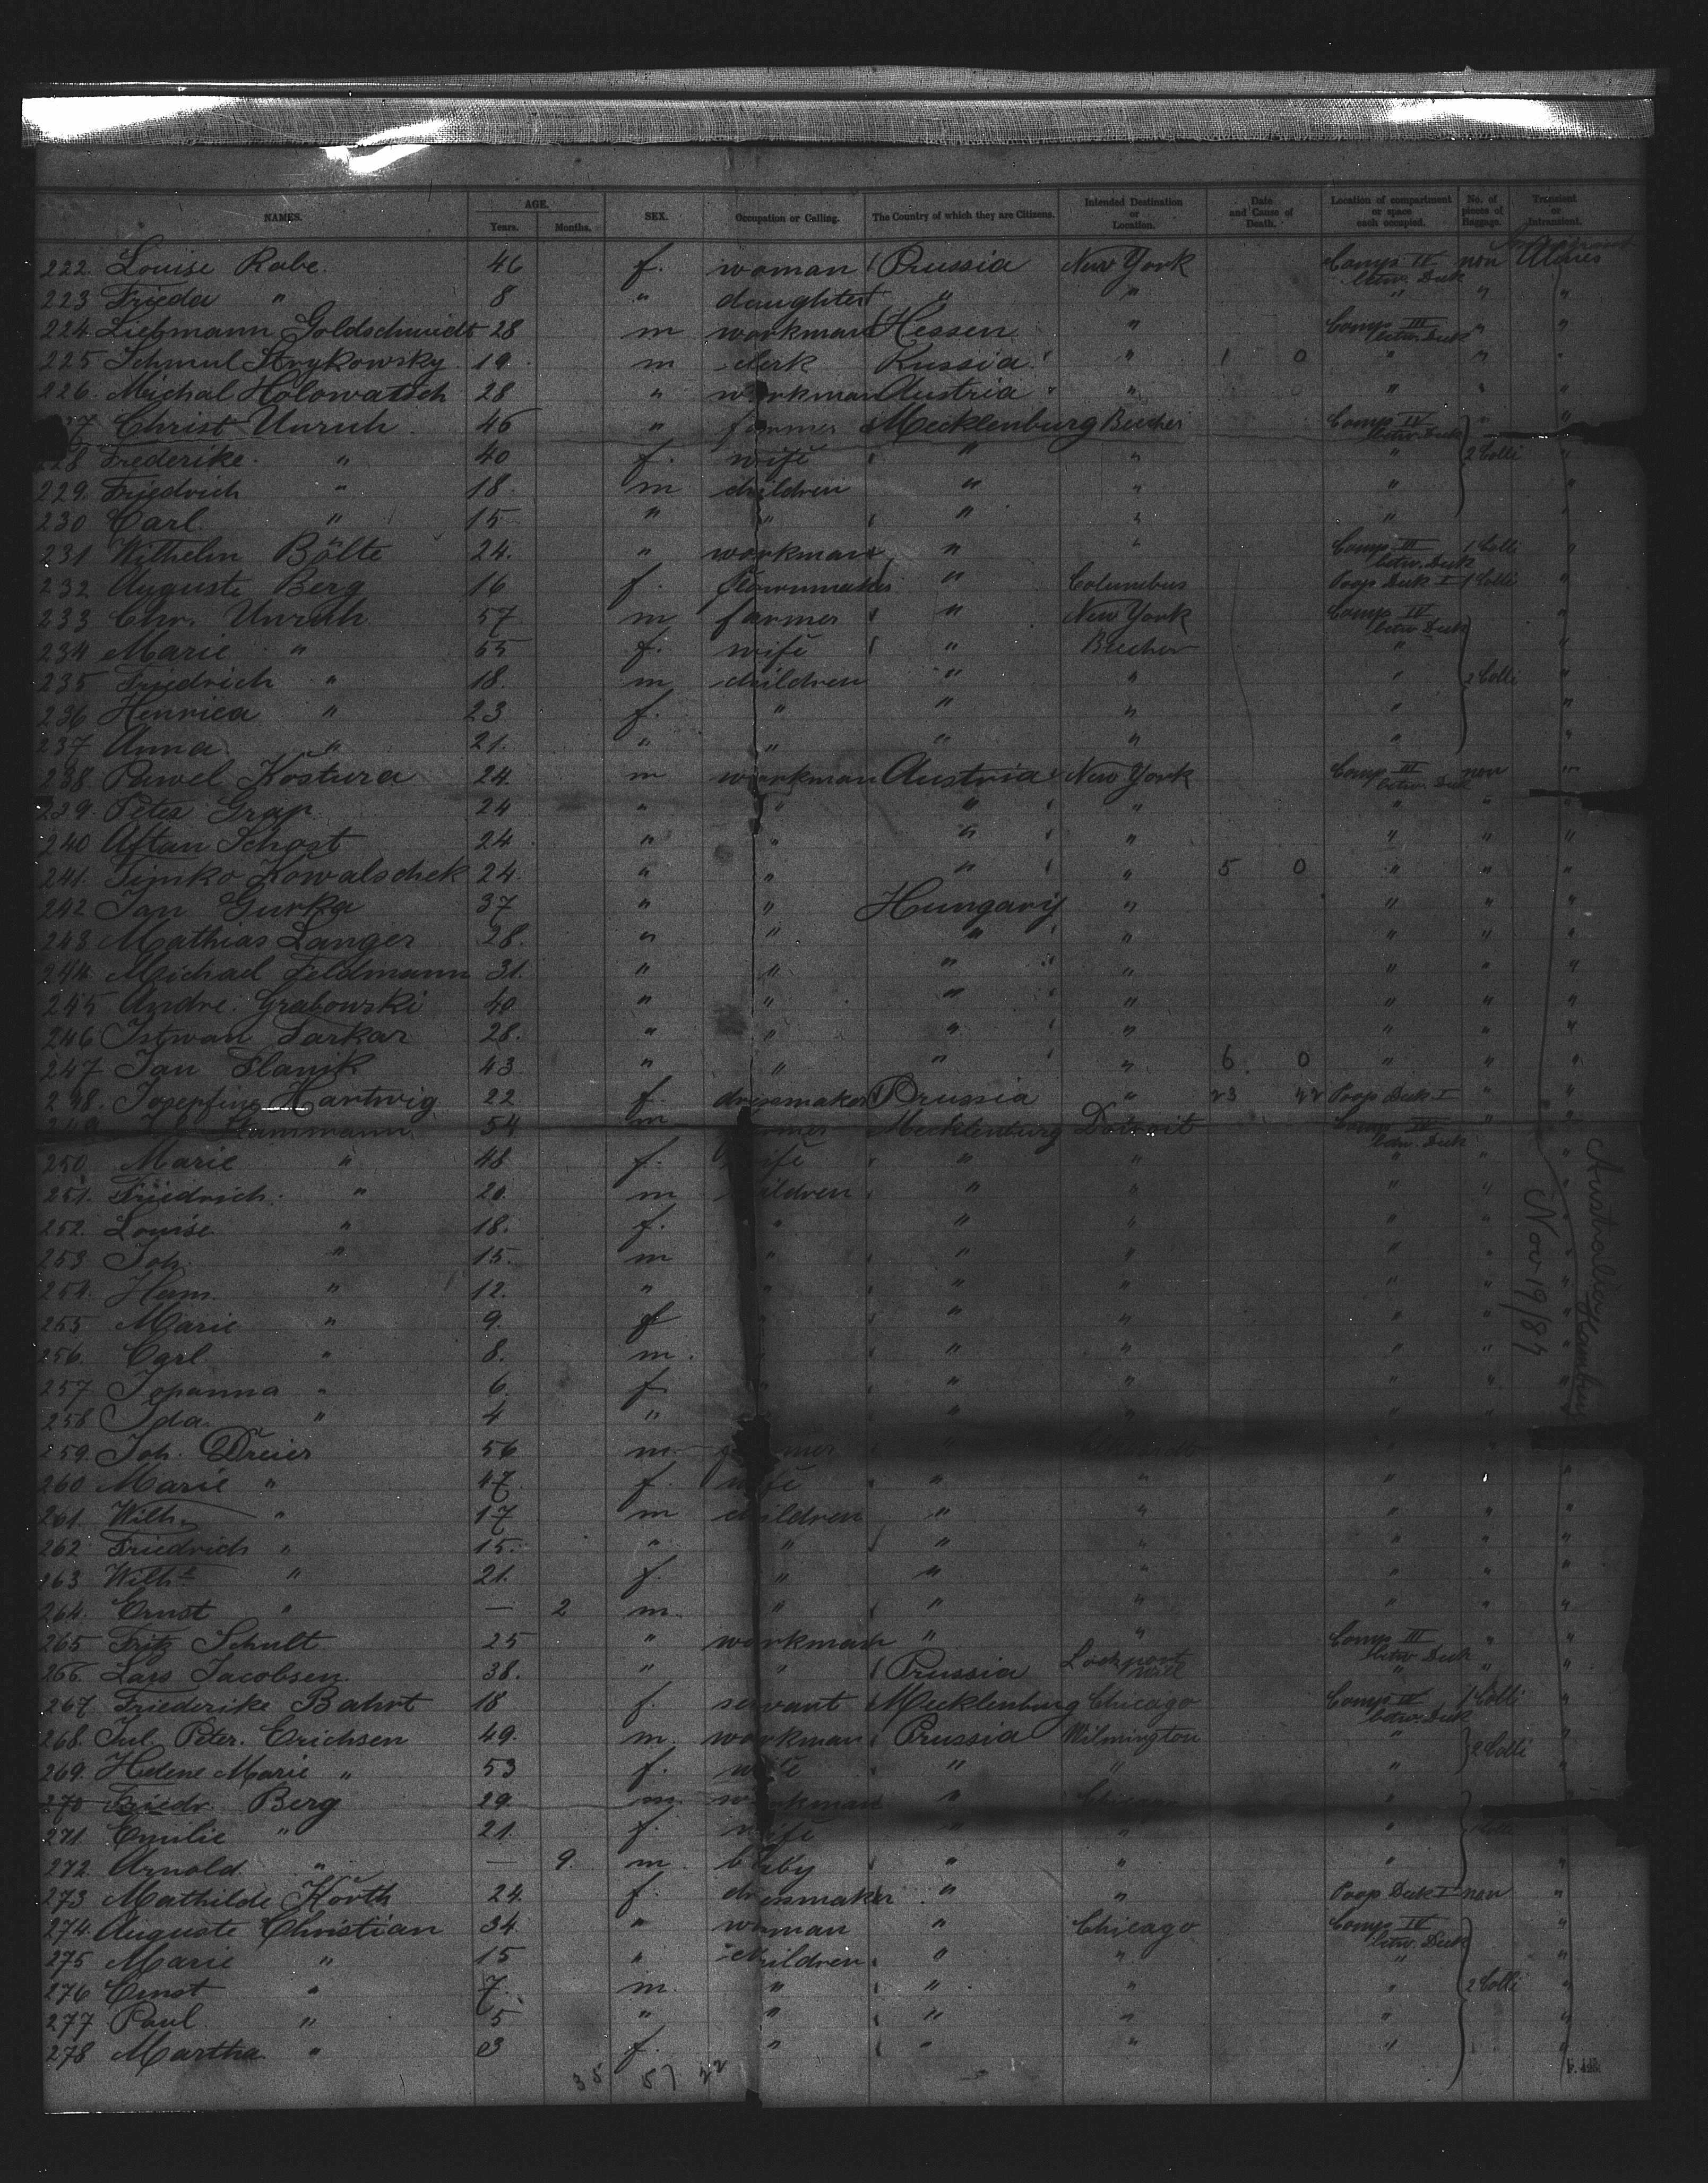 NAMES. AGE. Years. Months. SEX. Occupation or Calling. The Country of which they are Citizens. Intended Destination or Location. Date and Cause of Death. Location of compartment or space each occupied. No. of pieces of Baggage. Transient or Intransient.
222. Louise Rabe. 46 f. woman Prussia New York Comp IV betw. Deck non
223 Frieda " 8 " daughter " " " " "
224. Liebmann Goldschmidt 28 m workman Hessen " Comp III betw. Deck " "
225 Schmul Strykowsky 19 m clerk Russia " 1 0 " " "
226. Michal Holowatsch 28 " workman Austria " " " "
Christ Unruh 46 " farmer Mecklenburg Beecher Comp IV betw. Deck " "
228 Frederike " 40 f. wife " " " 2 Colli "
229. Friedrich " 18. m children " " " "
230 Carl " 15 " " " " " "
231 Wilhelm Bölte 24. " workman " " Comp III betw. Deck 1 Colli "
232 Auguste Berg 16 f. " Columbus Poop Deck I 1 Colli "
233 Chr. Unruh 57 m farmer " New York Comp IV betw Deck "
234 Marie " 55 f. wife " Beecher " "
235 Friedrich " 18. m children " " " 2 Colli "
236 Henrica " 23 f. " " " " "
237 Anna " 21. " " " " " "
238. Pawel Kostura 24. m workman Austria New York Comp III betw. Deck non "
239 Peter Grap 24 " " " " " " "
240 Aftan Schost 24 " " " " " " "
241. Timko Kowalschek 24. " " " " 5 0 " " "
242 Jan Gurka 37 " " Hungary " " " "
243 Mathias Langer 28. " " " " " " "
244. Michael Feldmann 31. " " " " " " "
245 Andre. Grabowski 40 " " " " " " "
246 Istwan Tarkar 28. " " " " " " "
247 Jan Slanik 43 " " " " 6 0 " " "
248. Josepfine Hartwig 22 f. dressmaker Prussia " 23 Poop Deck I " "
54 m Mecklenburg Detroit Comp IV betw. Deck " "
250 Marie " 48 f. wife " " " " "
251. Friedrich " 20. m children " " " " "
252. Louise " 18. f. " " " " " "
253 Joh. " 15. m " " " " " "
254. " 12. " " " " " " "
255 Marie " 9. f " " " " "
256. Carl " 8. m. " " " " "
257 Johanna " 6. f " " " " "
258 Ida. " 4 " " " " " "
259. Joh. Dreier 56 m farmer " " " "
260 Marie " 47 f. wife " " " " "
261. Wilh. " 17 m children " " " " "
262 Friedrich " 15. " " " " " " "
263 Wilhe " 21. f. " " " " " "
264. Ernst " — 2 m. " " " " " "
265 Fritz Schult 25 " workman " " Comp III betw Deck " "
266. Lars Jacobsen 38. " " Prussia Lockport " " "
267. Friederike Bahrt 18 f. servant Mecklenburg Chicago Comp IV betw. Deck 1 Colli "
268. Jul. Peter. Erichsen 49. m. workman Prussia Wilmington " 2 Colli "
269. Helene Marie " 53 f. wife " " " "
270 Friedr. Berg 29. m workman " Chicago "
271. Emilie " 21. f. wife " " "
272. Arnold " — 9. m. baby " " " "
273 Mathilde Korth 24. f. dressmaker " " Poop Deck I non "
274. Auguste Christian 34. " woman " Chicago Comp IV betw. Deck "
275 Marie " 15 " children " " " "
276 Ernst " 7. m. " " " " 2 Colli "
277 Paul " 5 " " " " " "
278 Martha " 3 f. " " " " "
35 57
Australia Hamburg
Nov 19/84